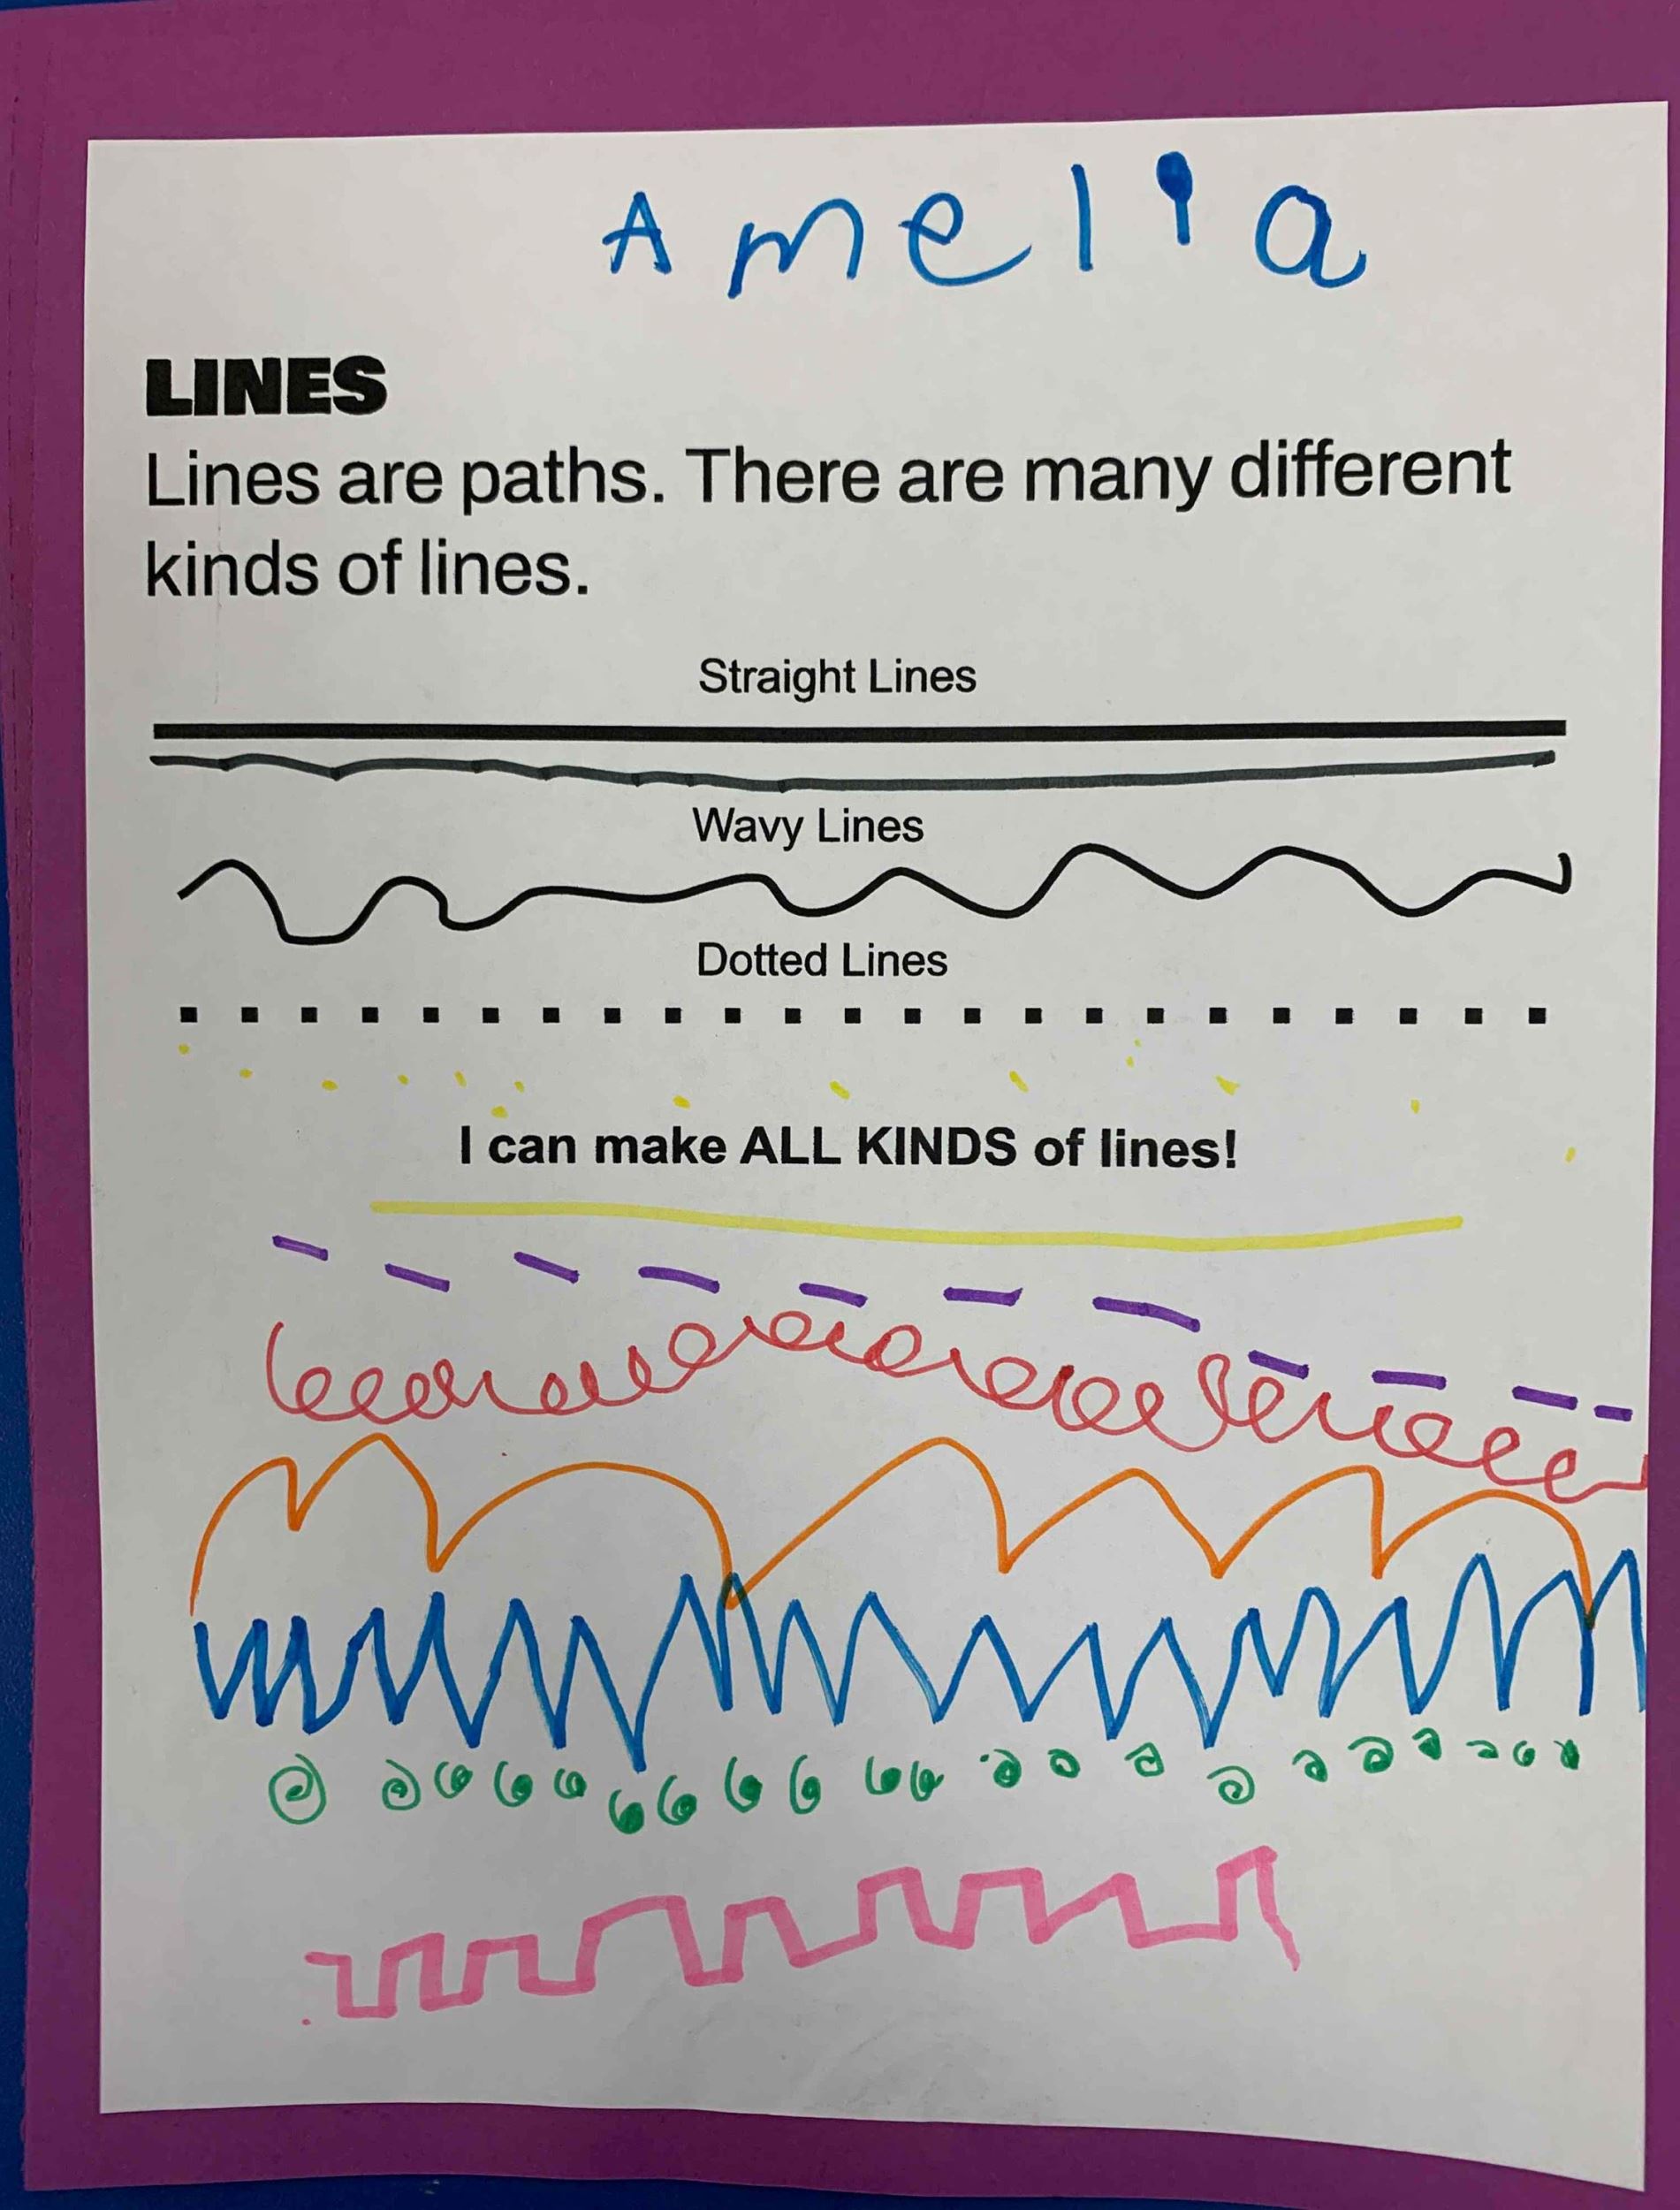 Amelia
LINES
Lines are paths. There are many different
kinds of lines.
Straight Lines
Wavy Lines
Dotted Lines
I can make ALL KINDS of lines!